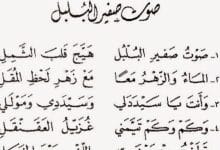 صوت صفير البلبل
١- صوت صفير البلبل هيّج قلب الثمل
٢- الماء والزهر معًا مع زهر لحظ المقل
٣- وأنت يا سيّددلي وسيّددي ومولى لي
٤- وكم وكم تيّمني غزيّل العقنقل